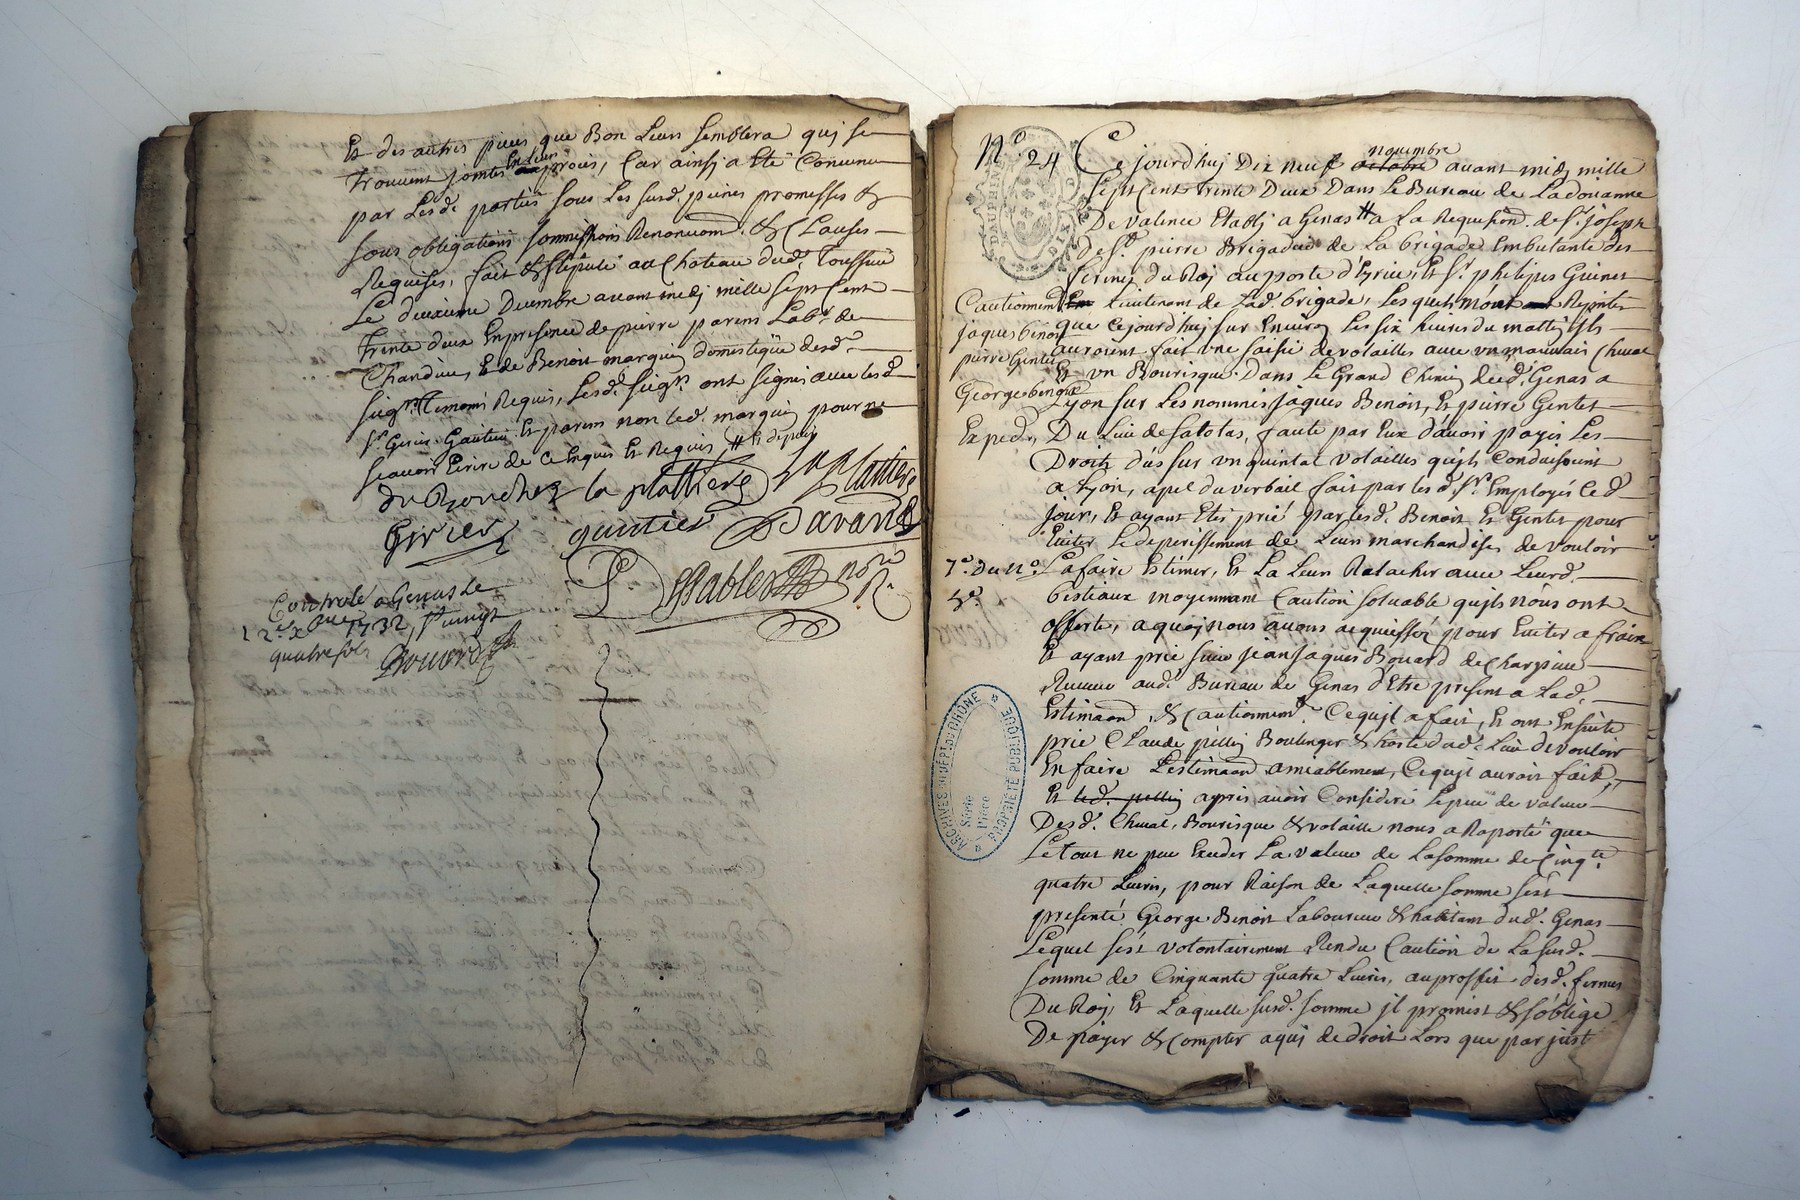 Et des autres pieces que Bon Leurs semblera quj se
trouvent jointes En Leur procés, Car ainsj a Eté Convenu
par Lesd. parties sous Les susd. peines promesses &
sous obligations soumissions Renonciaon. & Clauses
Requises, fait & stipulé au Chateau dud. Toussieu
Le deuxieme Decembre avant midj mille sept Cent
Trente deux En presence de pierre parens Labr. de
Chandieu, & de Benoit marquis domestique desd.
seigrs. Temoins Requis, Lesd. seigrs. ont signés avec lesd.
srs. Girier Gautier Et parens non led. marquis pour ne
sçavoir Ecrire de ce Enquis Et Requis #
du Bouchez la plattiere
Girier gautier
Controlé a Genas Le
12e. Xbre 1732,
quatre sols
No. 24 Ce jourd'huj Dix neuf octobre novembre avant midj mille
sept Cent Trente Deux Dans Le Bureau de La doüanne
De valence Etablj a Genas # a La Requision. de sr. joseph
de st. pierre Brigadier de La brigade Embulante des
fermes du Roj au poste d'hyrieu, Et sr. philipes Guinet
Lieutenant de Lad. brigade, Lesquels Repntés
que Cejourd'huj sur Environ Les six heures du mattin Ils
auroient fait une saisie de volailles avec un mauvais Cheval
Et un Bourisque Dans Le Grand Chemin dud. Genas a
Lyon sur Les nommés jaques Benoit, Et pierre Gentet
Du Lieu de satolas, faute par Eux d'avoir payés Les
Droits dûs sur un quintal volailles qu'ils Conduisoient
a Lyon, apel du verbail fait par lesd. srs. Employés Ced.
jour, Et ayant Etés prié par lesd. Benoit Et Gentet pour
Eviter Le deperissement de Leurs marchandises de vouloir
La faire Estimer, Et La Leur Relacher avec Leursd.
bestiaux moyennant Caution solvable qu'ils nous ont
offerte, a quoj nous avons acquiessé pour Eviter a fraix
Et ayant prié sieur jean jaques Bouard de Charpieu
Receveur aud. Bureau de Genas d'Etre present a Lad.
Estimaon. & Cautionnemt. Cequjl a fait, Et ont Ensuite
prié Claude pellin Boulenger & hoste dud. Lieu de vouloir
En faire L'estimaon amiablement, Cequjl auroit fait,
Et led. pellin aprés avoir Consideré Le peu de valeur
Desd. Cheval, Bourisque & volaille nous a Raporté que
Le tout ne peu Exceder La valeur de La somme de Cinqte.
quatre Livres, pour Raison de Laquelle somme s'est
presenté George Benoit Laboureur & habitant dud. Genas
Lequel s'est volontairement Rendu Caution de La susd.
somme de Cinquante quatre Livres, au proffit desd. fermes
Du Roj, Et Laquelle susd. somme jl promist & s'oblige
De paÿer & Compter a quj de droit Lors que par just
Cautionnemt.
jaques benoit
pierre Gentet
George benoit
Exped.
DAUPHINE
ARCHIVES DU DÉPt. DU RHÔNE
PROPRIÉTÉ PUBLIQUE
Série
Pièce